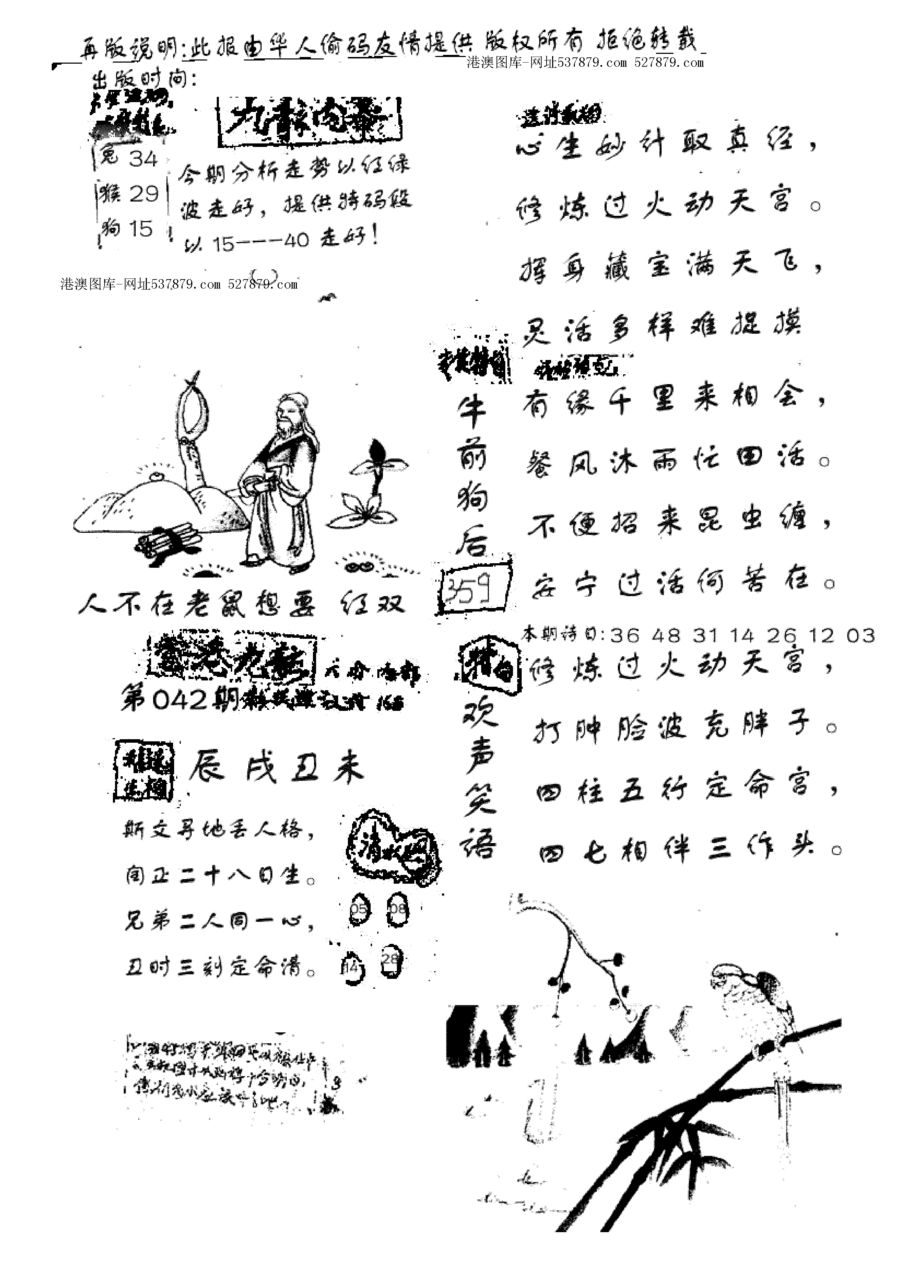 再版说明:此报由华人偷码友情提供 版权所有 拒绝转载
港澳图库-网址537879.com 527879.com
出版时间:
九龙内幕
兔 34
猴 29
狗 15
今期分析走势以红绿
波走好，提供特码段
以15---40走好！
港澳图库-网址537879.com 527879.com
心生妙计取真经，
修炼过火动天宫。
挥身藏宝满天飞，
灵活多样难捉摸
有缘千里来相会，
餐风沐雨忙田活。
不便招来昆虫缠，
安宁过活何苦在。
牛前狗后
359
人不在老鼠想要 红双
本期诗日:36 48 31 14 26 12 03
修炼过火动天宫，
打肿脸波充胖子。
四柱五行定命宫，
四七相伴三作头。
特
欢声笑语
第042期
辰戌丑未
斯文寻地丢人格，
闰正二十八日生。
兄弟二人同一心，
丑时三刻定命清。
05 08
14 28